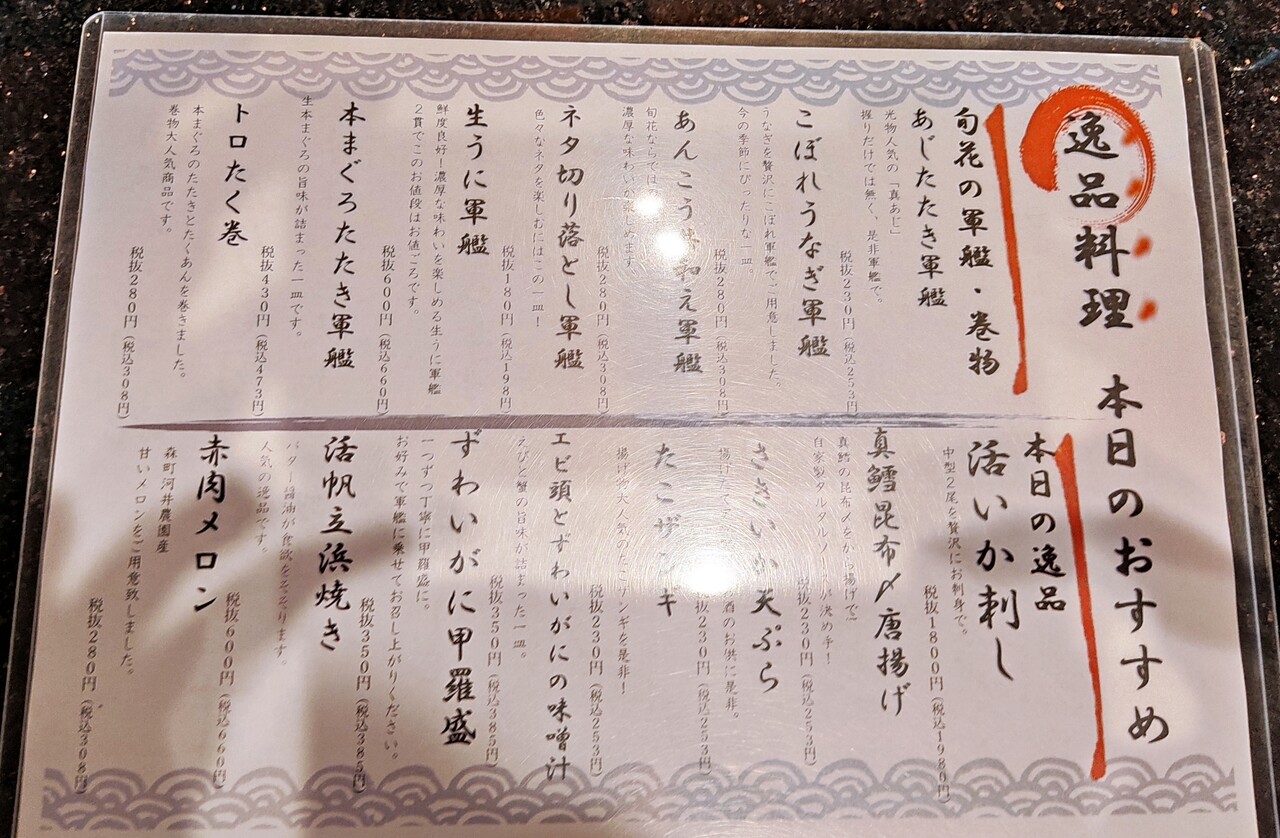 逸品料理 本日のおすすめ
旬花の軍艦・巻物
あじたたき軍艦
光物人気の「真あじ」
握りだけでは無く、是非軍艦で。
税抜230円(税込253円)
こぼれうなぎ軍艦
うなぎを贅沢にこぼれ軍艦でご用意しました。
今の季節にぴったりな一皿。
税抜280円(税込308円)
あんこう 和え軍艦
旬花ならでは
濃厚な味わいが楽しめます
税抜280円(税込308円)
ネタ切り落とし軍艦
色々なネタを楽しむにはこの一皿!
税抜180円(税込198円)
生うに軍艦
鮮度良好!濃厚な味わいを楽しめる生うに軍艦
2貫でこのお値段はお値ごろです。
税抜600円(税込660円)
本まぐろたたき軍艦
生本まぐろの旨味が詰まった一皿です。
税抜430円(税込473円)
トロたく巻
本まぐろのたたきとたくあんを巻きました。
巻物大人気商品です。
税抜280円(税込308円)
本日の逸品
活いか刺し
中型2尾を贅沢にお刺身で。
税抜1800円(税込1980円)
真鱈昆布〆唐揚げ
真鱈の昆布〆をから揚げで
自家製タルタルソースが決め手!
税抜230円(税込253円)
さきいか天ぷら
揚げたて、 酒のお供に是非。
税抜230円(税込253円)
たこザンギ
揚げ物大人気のたこザンギを是非!
税抜230円(税込253円)
エビ頭とずわいがにの味噌汁
えびと蟹の旨味が詰まった一皿。
税抜350円(税込385円)
ずわいがに甲羅盛
一つずつ丁寧に甲羅盛に。
お好みで軍艦に乗せてお召し上がりください。
税抜350円(税込385円)
活帆立浜焼き
バター醤油が食欲をそそります。
人気の逸品です。
税抜600円(税込660円)
赤肉メロン
森町河井農園産
甘いメロンをご用意致しました。
税抜280円(税込308円)